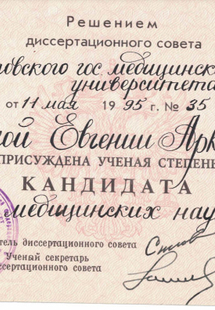 Решением
диссертационного совета
овского гос. медицинск
университета
от 11 мая 1995 г. № 35
ой Евгении Арк
ПРИСУЖДЕНА УЧЕНАЯ СТЕПЕНЬ
КАНДИДАТА
медицинских нау
тель диссертационного совета
Ученый секретарь
ссертационного совета